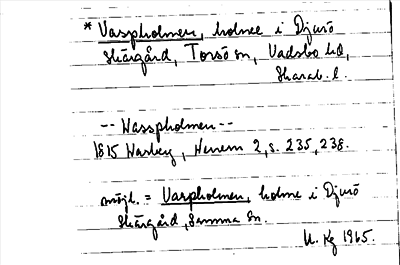 * Vasspholmen, holme i Djurö
skärgård, Torsö sn, Vadsbo hd,
Skarab. l.
-- Wasspholmen --
1815 Warberg, Henem 2, s. 235, 238.
möjl. = Varpholmen, holme i Djurö
Skärgård, samma sn.
1965.